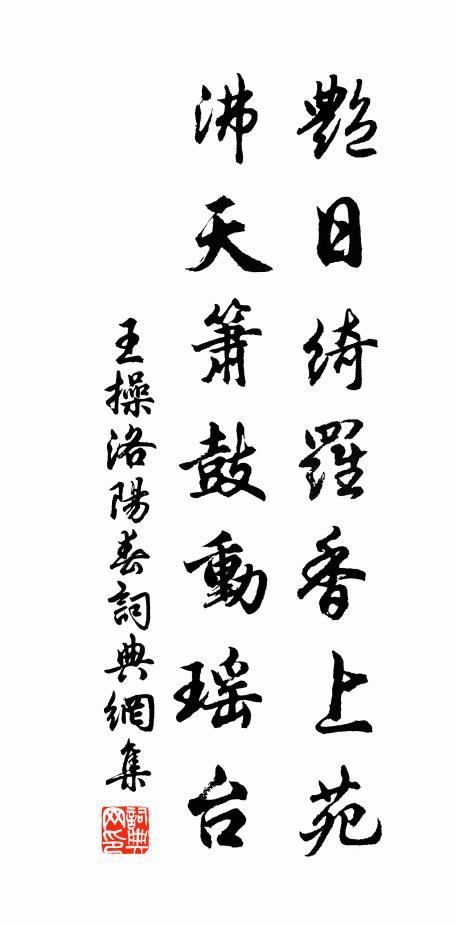 艷日綺羅香上苑
沸天簫鼓動瑶台
王操洛陽春詞典網集
詞典網印